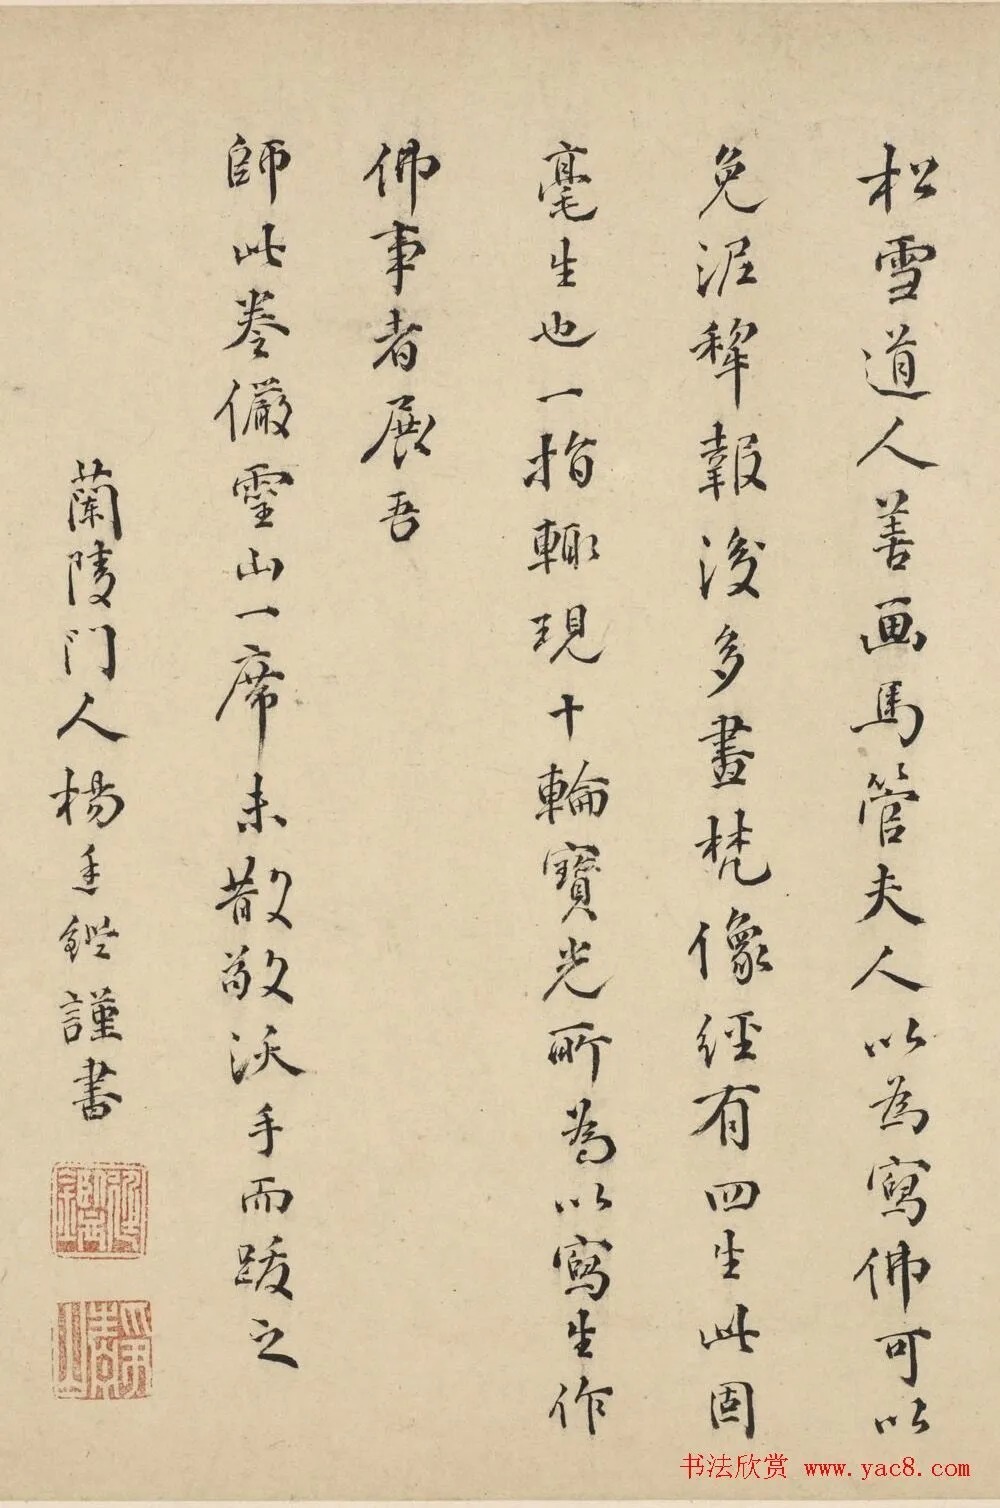 松雪道人善画馬管夫人以為寫佛可以
免泥犂報後多畫梵像經有四生此固
毫生也一指輒現十輪寶光所為以寫生作
佛事者展吾
師此卷儼靈山一席未散敬沃手而跋之
蘭陵門人楊廷鑑謹書
书法欣赏 www.yac8.com